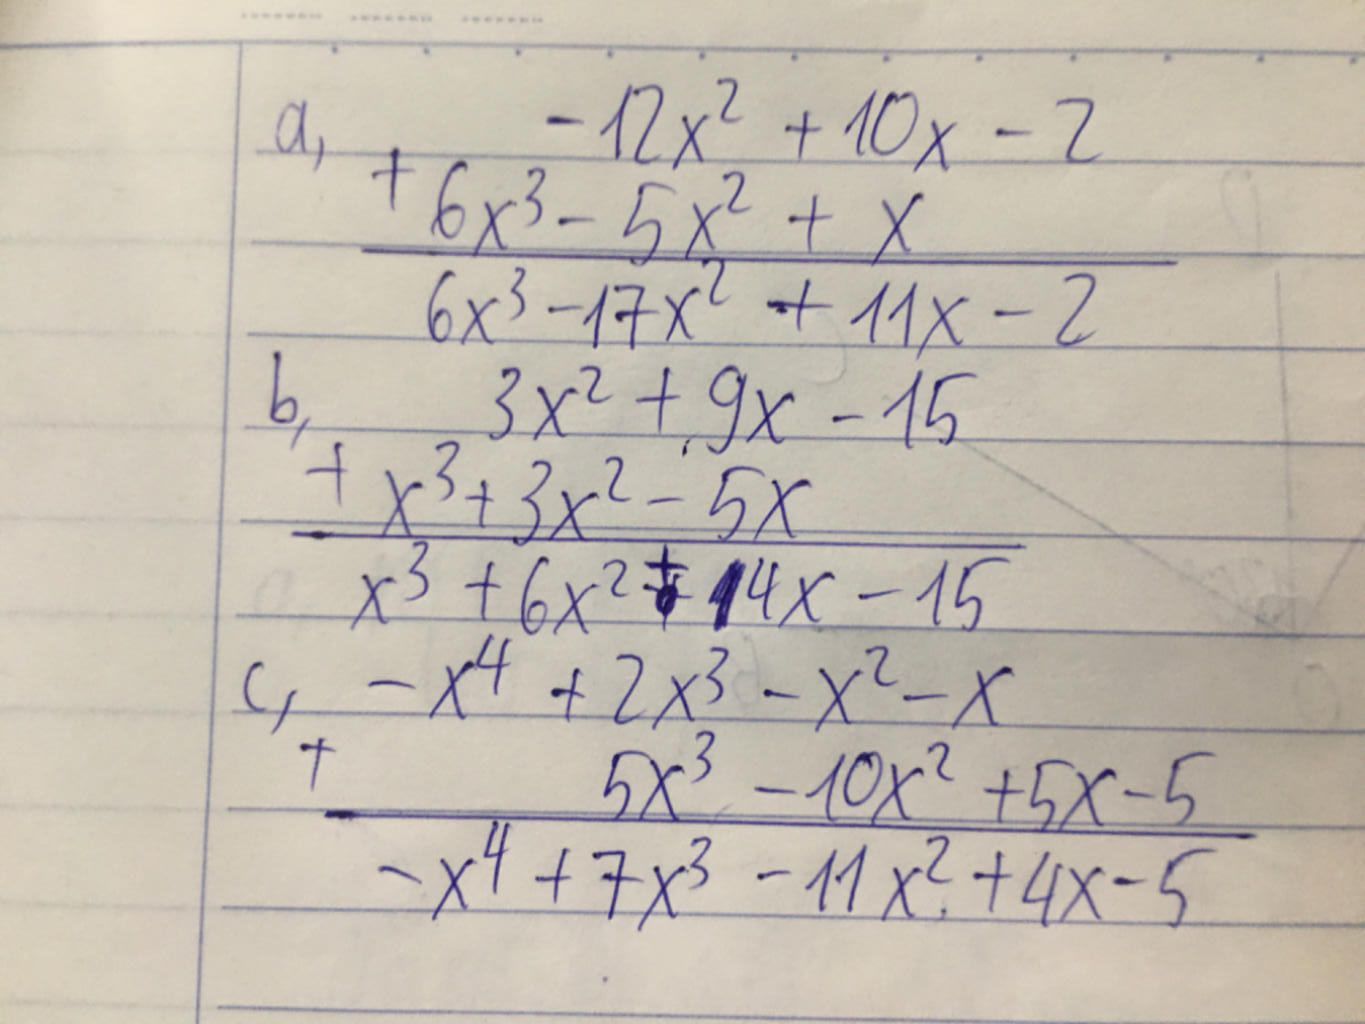 a, -12x² + 10x - 2
+ 6x³ - 5x² + x
6x³ - 17x² + 11x - 2
b, 3x² + 9x - 15
+ x³ + 3x² - 5x
x³ + 6x² + 14x - 15
c, -x⁴ + 2x³ - x² - x
+ 5x³ - 10x² + 5x - 5
-x⁴ + 7x³ - 11x² + 4x - 5